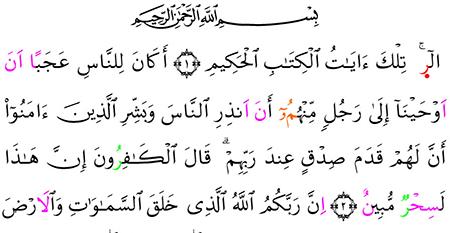 بِسْمِ ٱللَّهِ ٱلرَّحْمَٰنِ ٱلرَّحِيمِ
الٓر۪ۚ تِلْكَ ءَايَٰتُ ٱلْكِتَٰبِ ٱلْحَكِيمِ ١ أَكَانَ لِلنَّاسِ عَجَبًا اَنَ
اَوْحَيْنَآ إِلَىٰ رَجُلٖ مِّنْهُمُۥٓ أَنَ اَنذِرِ ٱلنَّاسَ وَبَشِّرِ ٱلَّذِينَ ءَامَنُوٓا۟
أَنَّ لَهُمْ قَدَمَ صِدْقٍ عِندَ رَبِّهِمْۗ قَالَ ٱلْكَٰفِرُونَ إِنَّ هَٰذَا
لَسِحْرٌ مُّبِينٌ ٢ اِنَّ رَبَّكُمُ ٱللَّهُ ٱلَّذِى خَلَقَ ٱلسَّمَٰوَٰتِ وَٱلَارْضَ